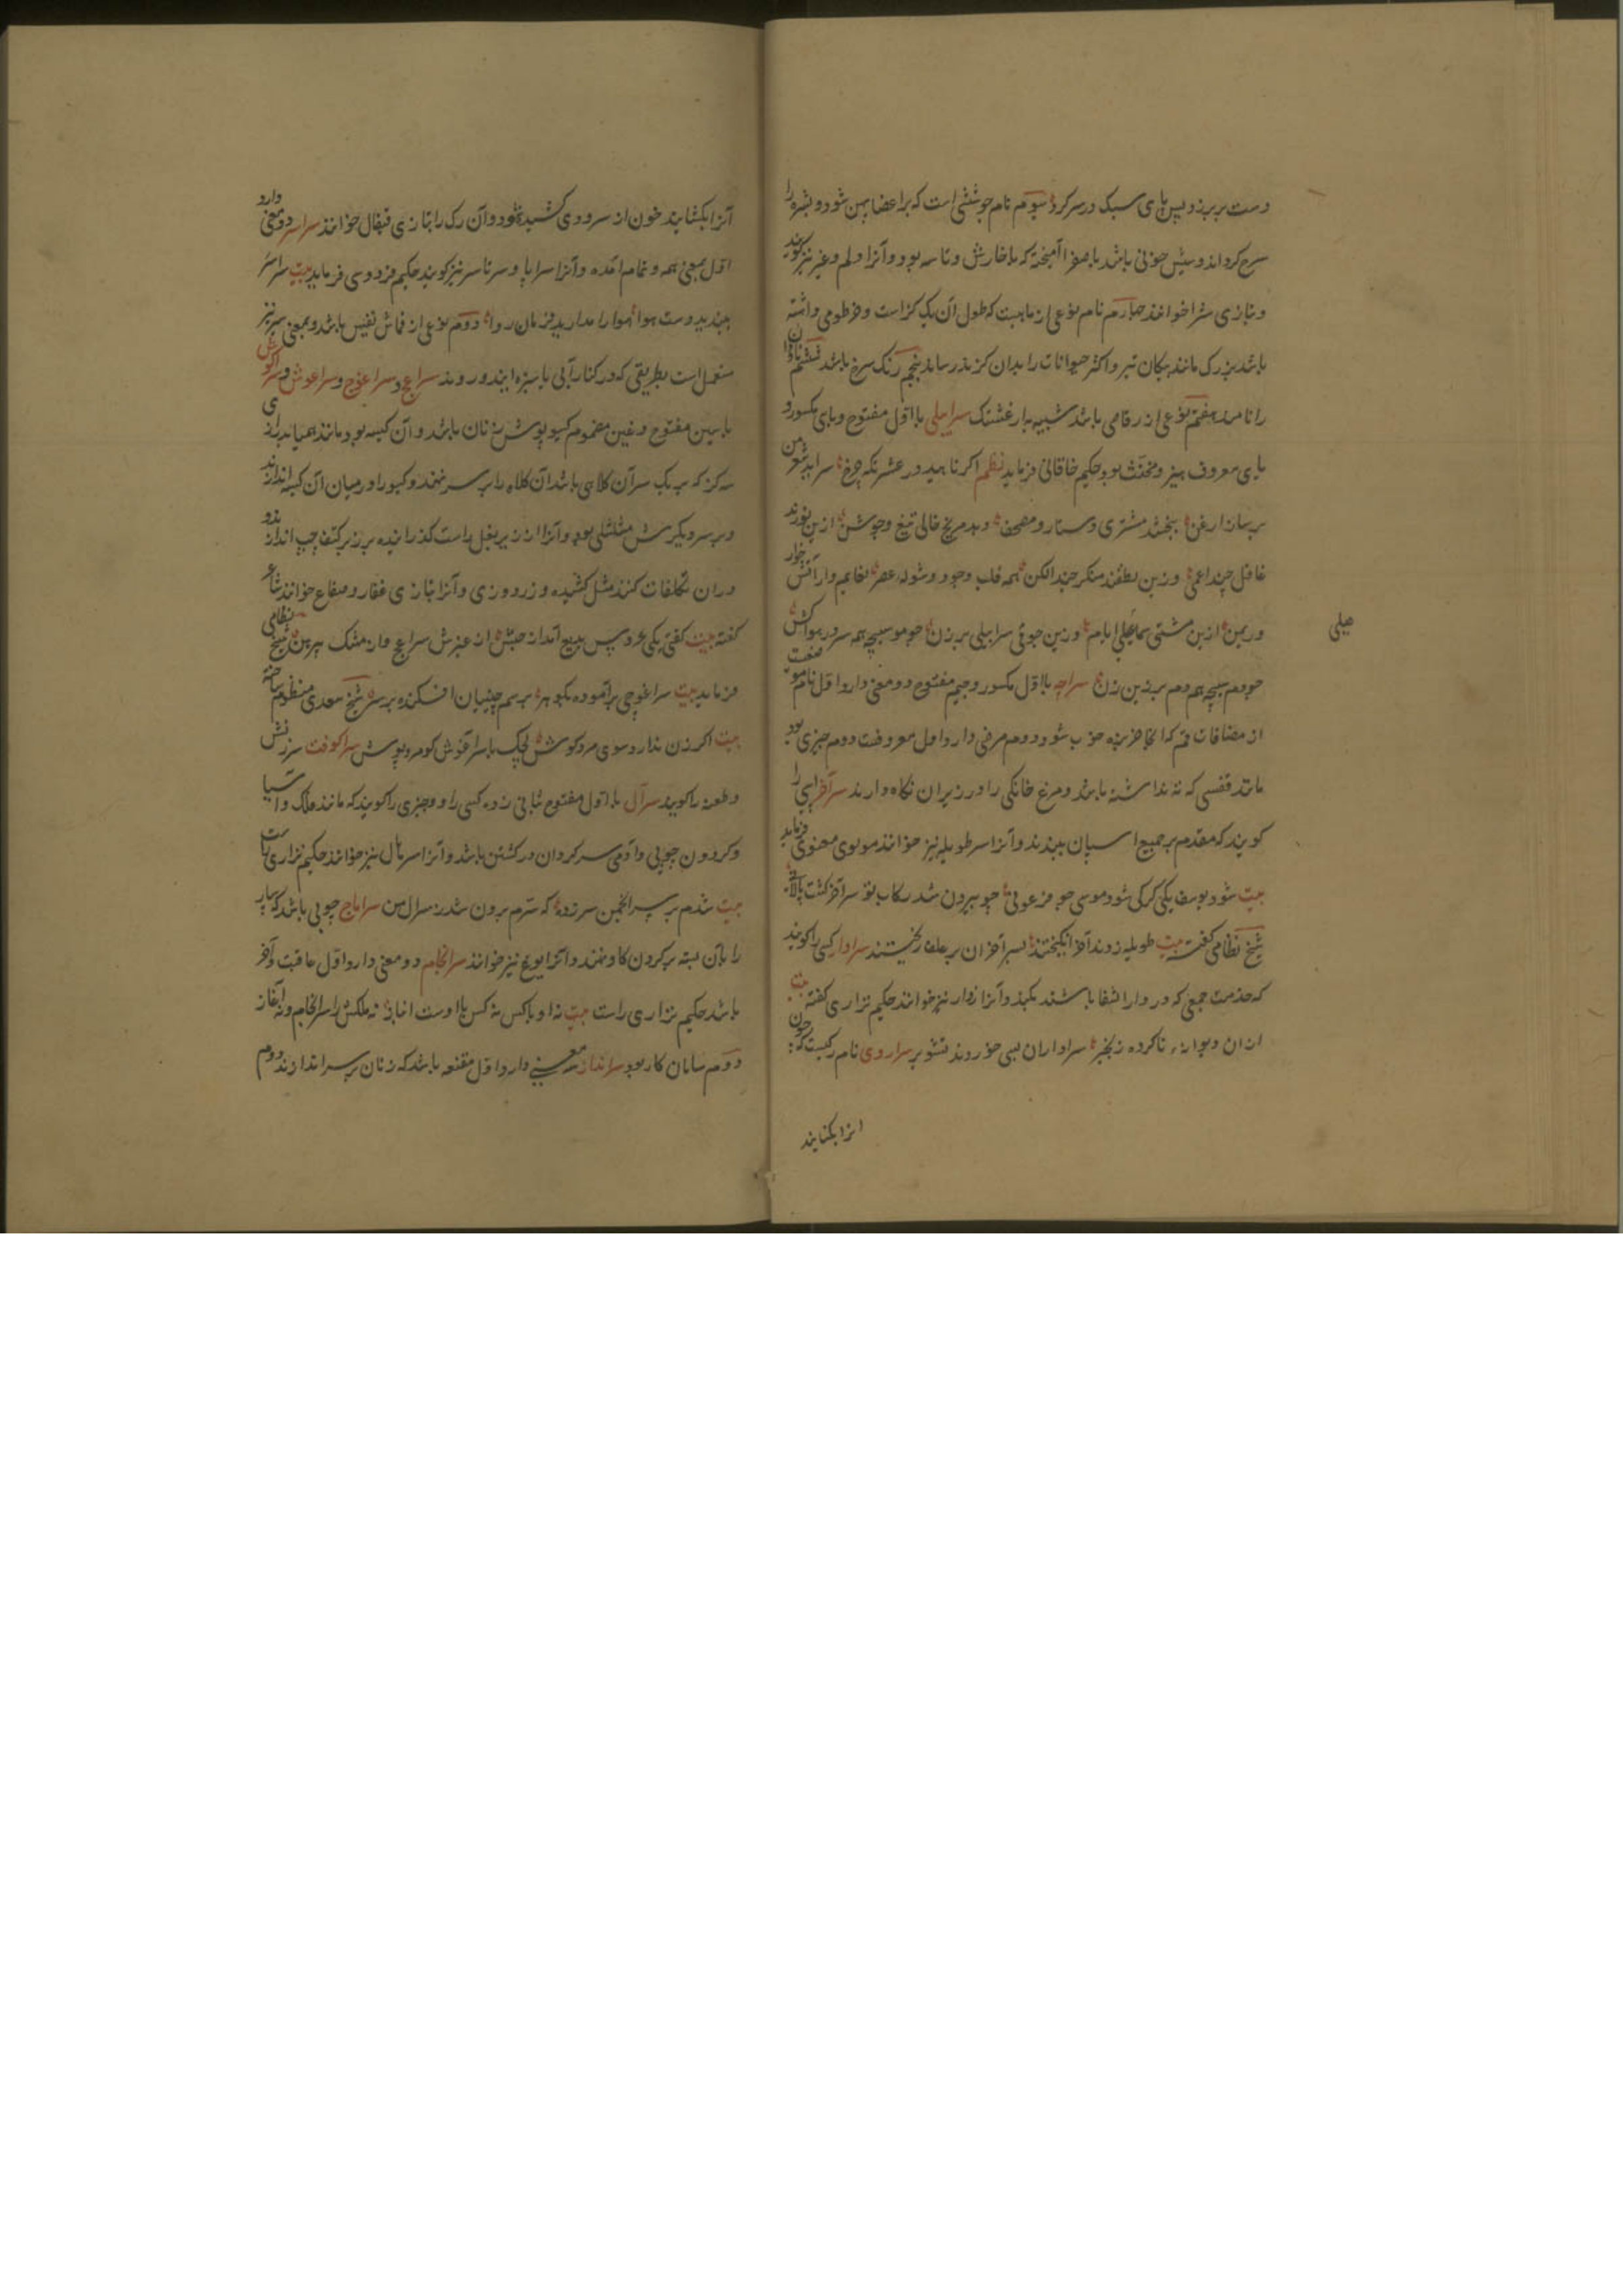 دست بر برزد و پس پای سبک در سر کرد سیوم نام جوششی است که بر اعضا پهن شود و بشره را
سرخ گرداند و بیش خونی باشد با صفرا آمیخته که با خارش و تاسه بود و آنرا ولم و غیر نیز گویند
و بتازی شرا خوانند چهارم نام نوعی از ماهیست که طول آن یک گز است و خرطومی داشته
باشد بزرگ مانند پیکان تیر و اکثر حیوانات را بدان گزند رساند پنجم رنگ سرخ باشد ششم
را نامند هفتم نوعی از رقاصی باشد شبیه بارغشتک سرابیلی با اول مفتوح و بای مکسور و
یای معروف هیز و مخنث بود حکیم خاقانی فرماید نظم اگر ناهید در عشرتگه چرخ سراید شعر من
بر ساز ارغن ببخشد مشتری دستار و مصحف دهد مریخ حالی تیغ و جوشن ازین نورند
غافل چند اعمی وزین نطقند منکر چند الکن همه قلب وجود و شوله عصر نعایم وار آتش خوار
و ریمن ازین مشتی سماعیلی ایام وزین جوقی سرابیلی برزن چو موسیجه همه سر در هوا کش
چو دم سیجه همه دم بر زمین زن سراچه با اول مکسور و جیم مفتوح دو معنی دارد اول نام
از مضافات قم که آنجا خربزه خوب شود و دوم مرضی دارد اول معروفست دوم چیزی بود
مانند قفسی که ته نداشته باشد و مرغ خانگی را در زیر آن نگاه دارند سرآخر اسپی را
گویند که مقدم بر جمیع اسپان ببندند و آنرا سر طویله نیز خوانند مولوی معنوی فرماید
بیت شود یوسف یکی گرگی شود موسی چو فرعونی چو بیرون شد رکاب تو سرآخر گشت پالانی
شیخ نظامی گفت بیت طویله زدند آخر انگیختند بسر آخران بر علف ریختند سرادار کسی را گویند
که خدمت جمعی که در دارالشفا باشند بکند و آنرا زوار نیز خوانند حکیم نزاری گفته بیت
از آن دیوانه ناکرده زنجیر سراداران بسی خوردند تشویر سراروی نام رگیست که چون
آنرا بکشایند
صیلی
آنرا بکشایند خون از سر و روی کشیده شود و آن رگ را بتازی قیفال خوانند سراسر دو معنی دارد
اول بمعنی همه و تمام آمده و آنرا سراپا و سرتاسر نیز گویند حکیم فردوسی فرماید بیت سراسر
ببندید دست هوا هوا را مدارید فرمان روا دوم نوعی از قماش نفیس باشد و بمعنی سر بسر نیز
مستعمل است بطریقی که در کنار آبی یا سبزه آیند و روند سراغج و سراغوج و سراغوش و سراکوش
با سین مفتوح و غین مضموم گیسو پوش زنان باشد و آن کیسه بود مانند همیانی بدرازی
سه گز که بر یک سر آن کلاهی باشد آن کلاه را بر سر نهند و گیسو را در میان آن کیسه اندازند
و بر سر دیگرش مثلثی بود و آنرا از زیر بغل راست گذرانیده بر زبر کتف چپ اندازند و
در آن تکلفات کنند مثل کشیده و زردوزی و آنرا بتازی غفار و صقاع خوانند شاعر
گفته بیت گفتی یکی عروس بدیع آمد از حبش از عنبرش سراغج و از مشک پیرهن شیخ نظامی
فرماید بیت سراغوجی برآموده بگوهر برسم چینیان افکنده بر سر شیخ سعدی منظوم ساخته
بیت اگر زن ندارد سوی مرد گوش سراغوش کو مرد پوش سراکوفت سرزنش
و طعنه را گویند سرال با اول مفتوح بثانی زده کسی را و چیزی را گویند که مانند فلک و آسیا
و گردون چوبی و آدمی سرگردان در گشتن باشد و آنرا سرپال نیز خوانند حکیم نزاری راست
بیت شدم بر سر انجمن سر زده که سترم برون شد ز سرال من سراماج چوبی باشد که سپار
را بآن بسته بر گردن گاو نهند و آنرا یوغ نیز خوانند سرانجام دو معنی دارد اول عاقبت و آخر
باشد حکیم نزاری راست بیت نه او با کس نه کس با اوست انباز نه ملکش را سرانجام و نه آغاز
دوم سامان کار بود سرانداز سه معنی دارد اول مقنعه باشد که زنان بر سر اندازند دوم